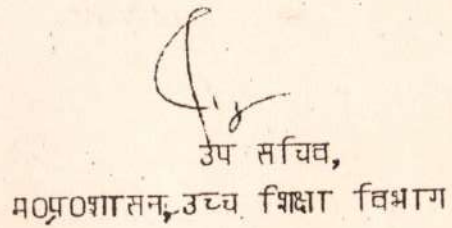 उप सचिव,
म०प्र०शासन, उच्च शिक्षा विभाग